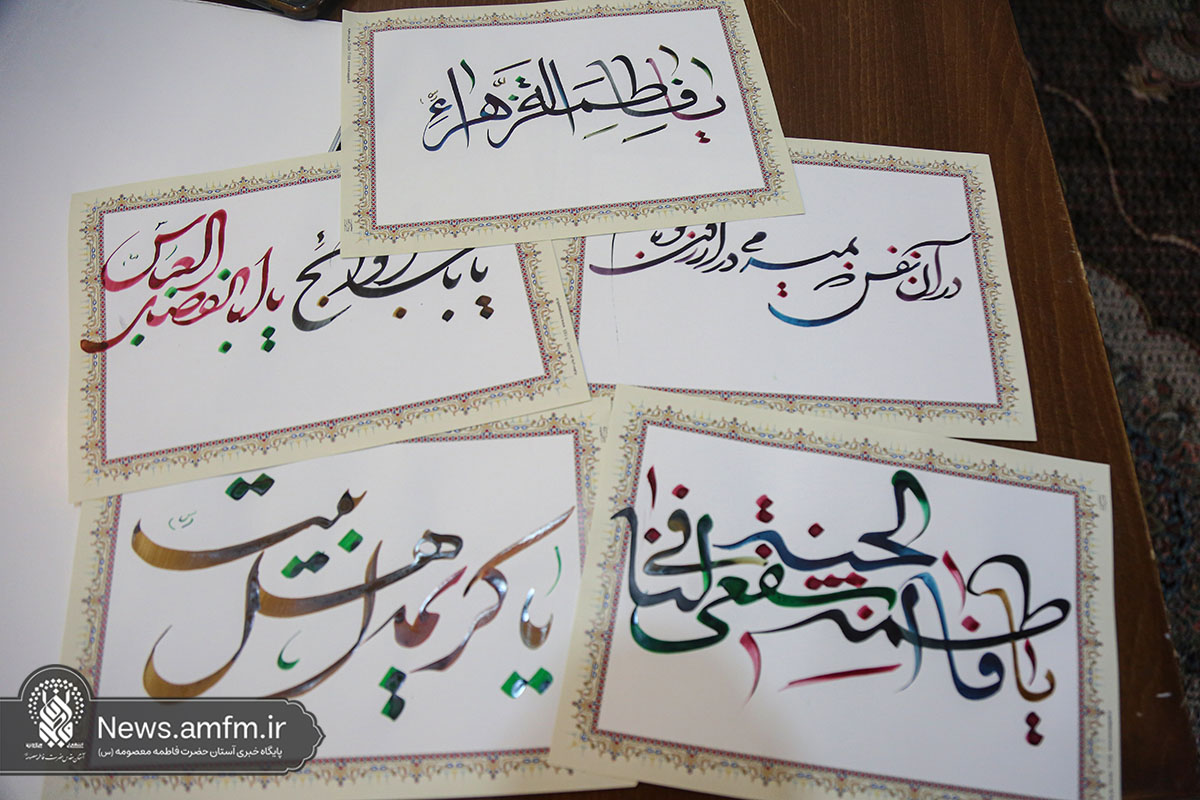 یا فاطمة الزهراء
یا باب الحوائج
یا اباالفضل
العباس
در آن نفس که بمیرم در آرزوی
یا کریمه اهل بیت
یا فاطمة اشفعی لنا فی
الجنة
News.amfm.ir
پایگاه خبری آستان حضرت فاطمه معصومه (س)